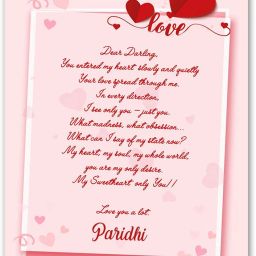 love
Dear Darling,
You entered my heart slowly and quietly
Your love spread through me.
In every direction,
I see only you – just you.
What madness, what obsession...
What can I say of my state now?
My heart, my soul, my whole world,
you are my only desire.
My Sweetheart only You!!
Love you a lot,
Paridhi